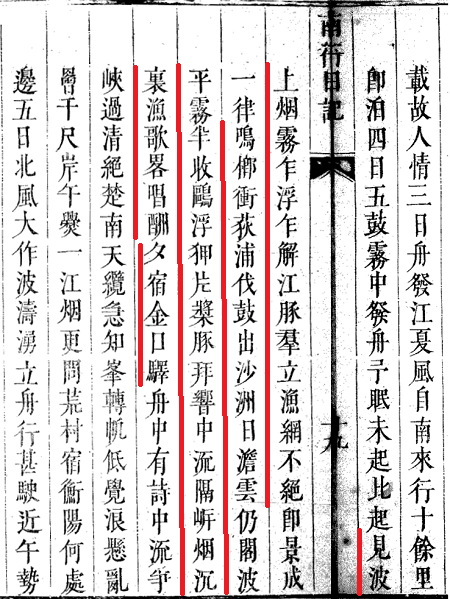 載故人情三日舟發江夏風自南來行十餘里
卽泊四日五鼓霧中發舟予眠未起比起見波
南行日記
十九
上烟霧乍浮乍解江豚羣立漁網不絕卽景成
一律鳴榔衝荻浦伐鼓出沙洲日澹雲仍閣波
平霧半收鷗浮狎片槳豚拜響中流隔㟁烟沉
裏漁歌畧唱酬夕宿金口驛舟中有詩中流爭
峽過清絕楚南天纜急知峯轉帆低覺浪懸亂
罾千尺岸午爨一江烟更問荒村宿衡陽何處
邊五日北風大作波濤湧立舟行甚駛近午勢